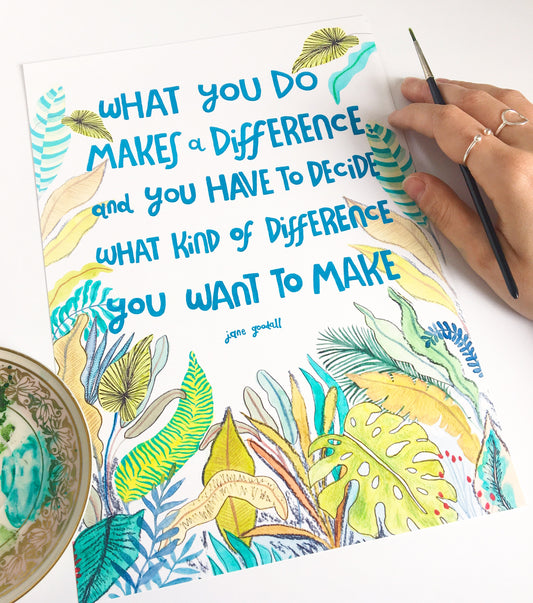 WHAT YOU DO
MAKES a DiffERENCE,
and YOU HAVE TO DECiDE
WHAT KiND OF DiffERENCE
YOU WANT TO MAKE
jane goodall